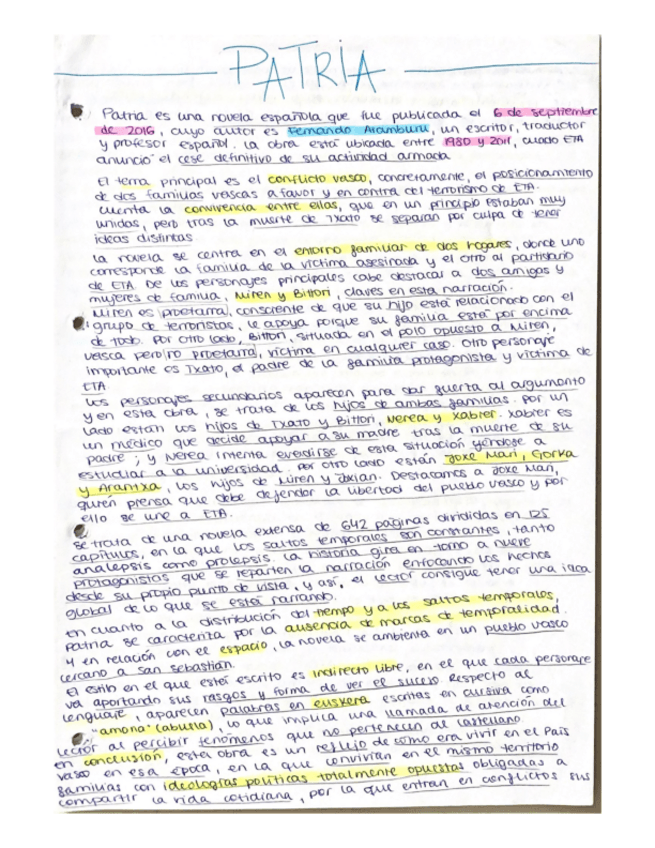 PATRIA
Patria es una novela española que fue publicada el 6 de septiembre
de 2016, cuyo autor es Fernando Aramburu, un escritor, traductor
y profesor español. La obra está ubicada entre 1980 y 2011, cuado ETA
anunció el cese definitivo de su actividad armada
El tema principal es el conflicto vasco, concretamente, el posicionamiento
de dos familias vascas a favor y en contra del terrorismo de ETA.
Cuenta la convivencia entre ellas, que en un principio estaban muy
unidas, pero tras la muerte de Txato se separan por culpa de tener
ideas distintas
La novela se centra en el entorno familiar de dos hogares, donde uno
corresponde la familia de la víctima asesinada y el otro al partidario
de ETA De los personajes principales cabe destacar a dos amigas y
mujeres de familia, Miren y Bittori, claves en esta narración.
Miren es proetarra, consciente de que su hijo está relacionado con el
grupo de terroristas, le apoya porque su familia está por encima
de todo. Por otro lado, Bittori, situada en el polo opuesto a Miren,
vasca pero no proetarra, víctima en cualquier caso. Otro personaje
importante es Txato, el padre de la familia protagonista y víctima de
ETA
Los personajes secundarios aparecen para dar fuerza al argumento
y en esta obra, se trata de los hijos de ambas familias. Por un
lado están los hijos de Txato y Bittori, Nerea y Xabier. Xabier es
un médico que decide apoyar a su madre tras la muerte de su
padre; y Nerea intenta evadirse de esta situación yéndose a
estudiar a la universidad. Por otro lado están Joxe Mari, Gorka
y Arantxa, los hijos de Miren y Joxian. Destacamos a Joxe Mari,
quién piensa que debe defender la libertad del pueblo vasco y por
ello se une a ETA.
Se trata de una novela extensa de 642 páginas divididas en 125
capítulos, en la que los saltos temporales son constantes, tanto
analepsis como prolepsis. La historia gira en torno a nueve
protagonistas que se reparten la narración enfocando los hechos
desde su propio punto de vista, y así, el lector consigue tener una idea
global de lo que se está narrando.
En cuanto a la distribución del tiempo y a los saltos temporales,
Patria se caracteriza por la ausencia de marcas de temporalidad.
Y en relación con el espacio, la novela se ambienta en un pueblo vasco
cercano a San Sebastián.
El estilo en el que está escrito es indirecto libre, en el que cada personaje
va aportando sus rasgos y forma de ver el suceso Respecto al
lenguaje, aparecen palabras en euskera escritas en cursiva como
"amona" (abuela), lo que implica una llamada de atención del
lector al percibir fenómenos que no pertenecen al castellano.
En conclusión, esta obra es un reflejo de cómo era vivir en el País
Vasco en esa época, en la que convivían en el mismo territorio
familias con ideologías políticas totalmente opuestas obligadas a
compartir la vida cotidiana, por la que entran en conflictos sus